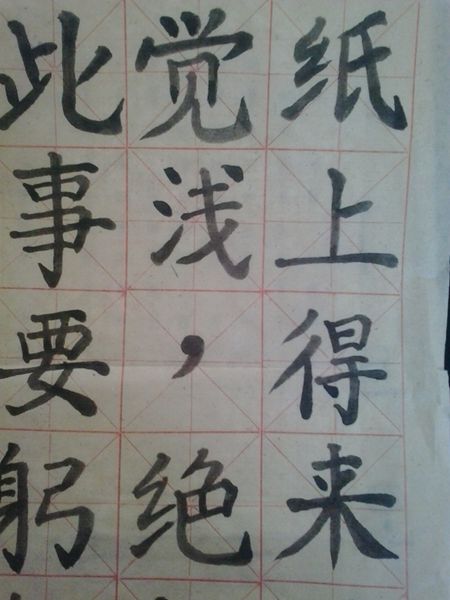 纸上得来
觉浅，绝
此事要躬